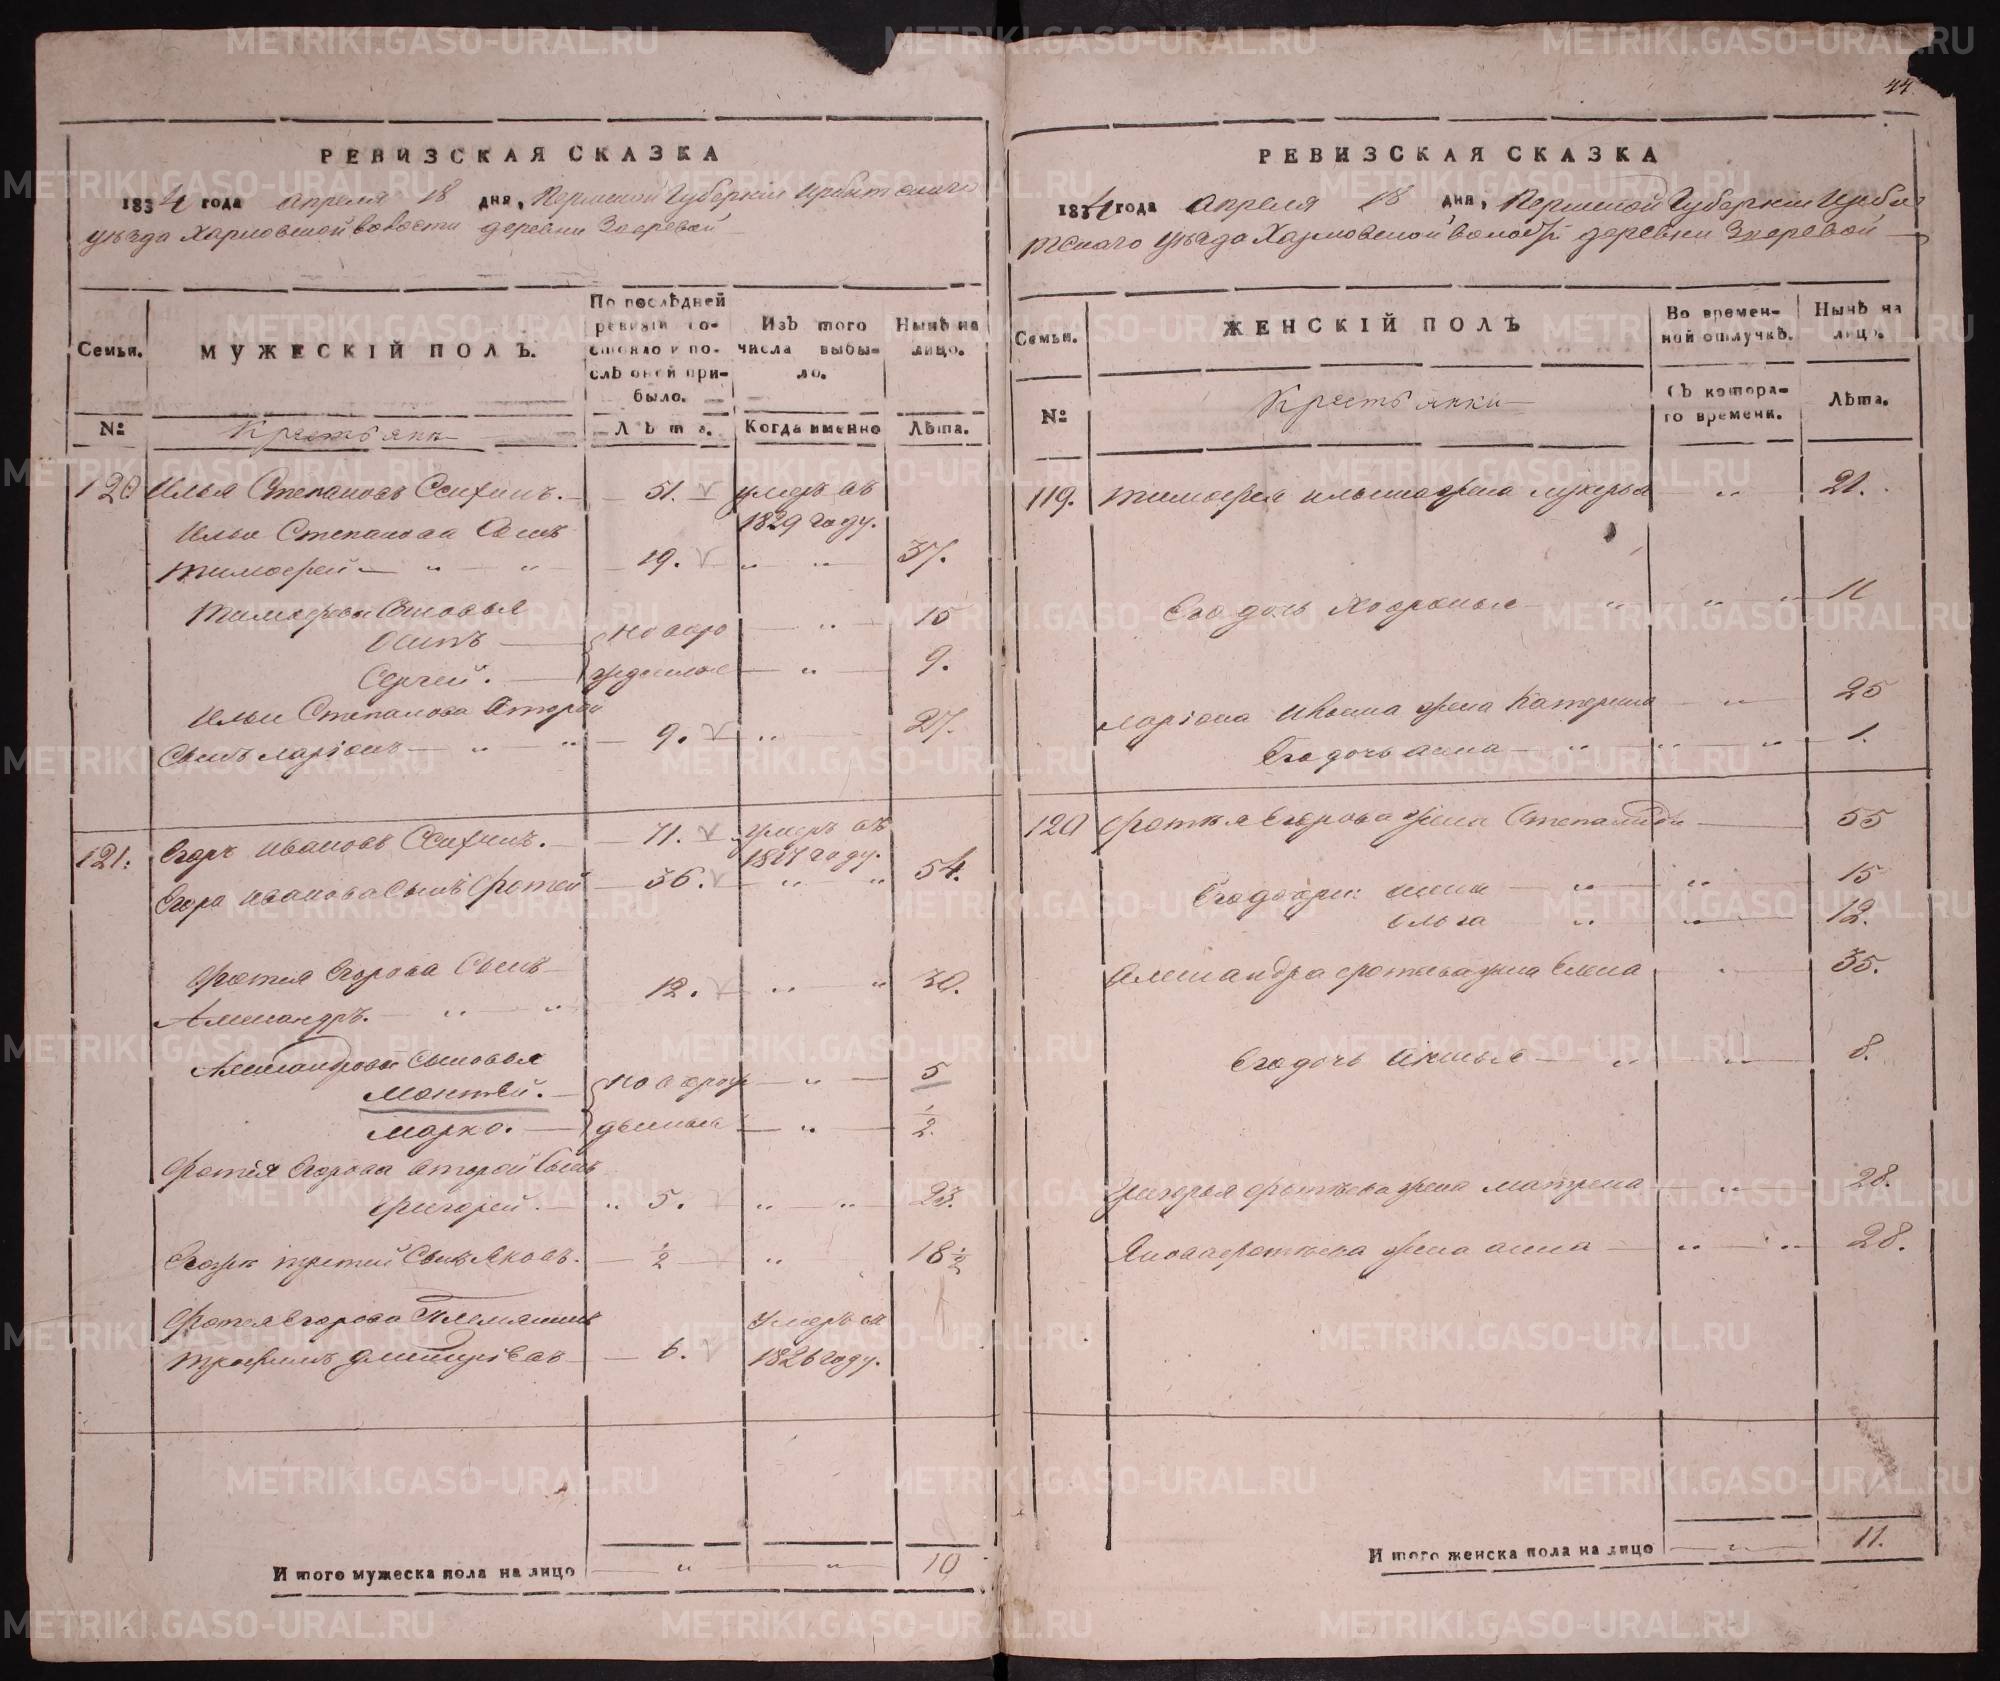 44
РЕВИЗСКАЯ СКАЗКА
1834 года апреля 18 дня, Пермской Губернiи Ирбитскаго
уезда Харловской волости деревни Зверевой
Семьи.
МУЖЕСКІЙ ПОЛЪ.
По послѣдней ревизіи состояло и послѣ оной прибыло.
Изъ того числа выбыло.
Нынѣ на лицо.
№
Крестьяне
Лѣта.
Когда именно
Лѣта.
120 Илья Степановъ 51. умеръ въ
1829 году.
Ильи Степанова Сынъ
Тимофей 19. " " 37.
Тимофея Сыновья
Осипъ новоро " 15
Сергей. жденные " 9.
Ильи Степанова второй
Сынъ Ларiонъ " " 9. " 27.
121. Егоръ Ивановъ 71. умеръ въ
1827 году.
Егора Иванова Сынъ Фотей 36. " " 54.
Фотея Егорова Сынъ
Александръ. " " 12. " " 30.
Александровы Сыновья
Мантей. новорож " 5
Марко. денные " 1/2.
Фотея Егорова второй Сынъ
Григорей. " 5. " " 23.
третей Сынъ Яковъ. 1/2 " 18 1/2
Фотея Егорова Племянник умеръ въ
Трофимъ Дмитрiевъ 6. 1826 году.
Итого мужеска пола на лицо " " 10
РЕВИЗСКАЯ СКАЗКА
1834 года апреля 18 дня, Пермской Губернiи Ирби
тскаго уезда Харловской волости деревни Зверевой
Семьи.
ЖЕНСКІЙ ПОЛЪ
Во временной отлучкѣ.
Нынѣ на лицо.
№
Крестьянки
Съ котораго времени.
Лѣта.
119. Тимофея Ильина жена Лукерья " 21.
Его дочь " " " 11
Ларiона Ильина жена Катерина " 25
Его дочь Анна " " " 1.
120 Фотея Егорова жена Степанида 55
Его дочери " " 15
Ольга " " 12.
Александра Фотеева жена Елена " 35.
Его дочь " " 8.
Григорья Фотеева жена Матрена " 28.
Якова Фотеева жена Анна " " 28.
Итого женска пола на лицо " 11.
METRIKI.GASO-URAL.RU